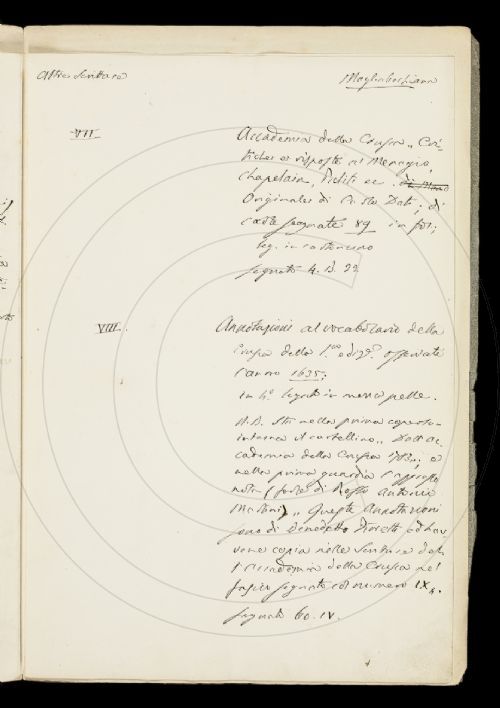 Altro Scrittore
Magliabechiana
VII
Accademia della Crusca „ Cri-
tiche e risposte al Menagio,
Chapelain, Rediti ec.
Originale di Carlo Dati; di
carte segnate 89 in fol;
leg. in cartoncino
segnato 4. B. 22
VIII.
Annotazioni al vocabolario della
Crusca della 1.ma ediz.e osservate
l'anno 1635;
in 4.o legato in mezza pelle.
N.B. Sta nella prima coperta
interna il cartellino „ Dall'Ac-
cademia della Crusca 1783„, e
nella prima guardia l'apposta
nota (forse di Rosso Antonio
Martini) „ Queste Annotazioni
sono di Benedetto Fioretti ed hav-
vene copia nelle Scritture del-
l'Accademia della Crusca nel
fascio segnato col numero IX
segnato 60. IV.